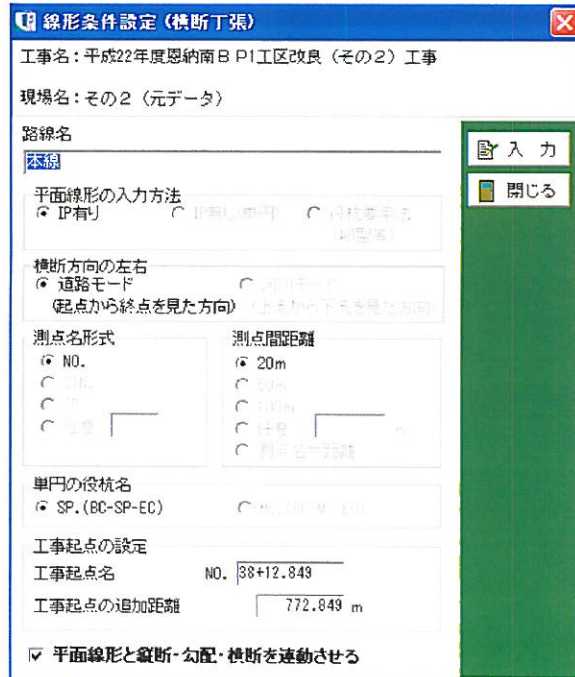 線形条件設定 (横断丁張)
工事名：平成22年度恩納南ＢＰ1工区改良（その２）工事
現場名：その２（元データ）
路線名
本線
入 力
閉じる
平面線形の入力方法
IP有り IP無し(単円)
横断方向の左右
道路モード 河川モード
(起点から終点を見た方向) (上流から下流を見た方向)
測点名形式 測点間距離
NO. 20m
50m
100m
任意 任意 m
単円の役杭名
SP.(BC-SP-EC)
工事起点の設定
工事起点名 NO. 38+12.849
工事起点の追加距離 772.849 m
平面線形と縦断・勾配・横断を連動させる